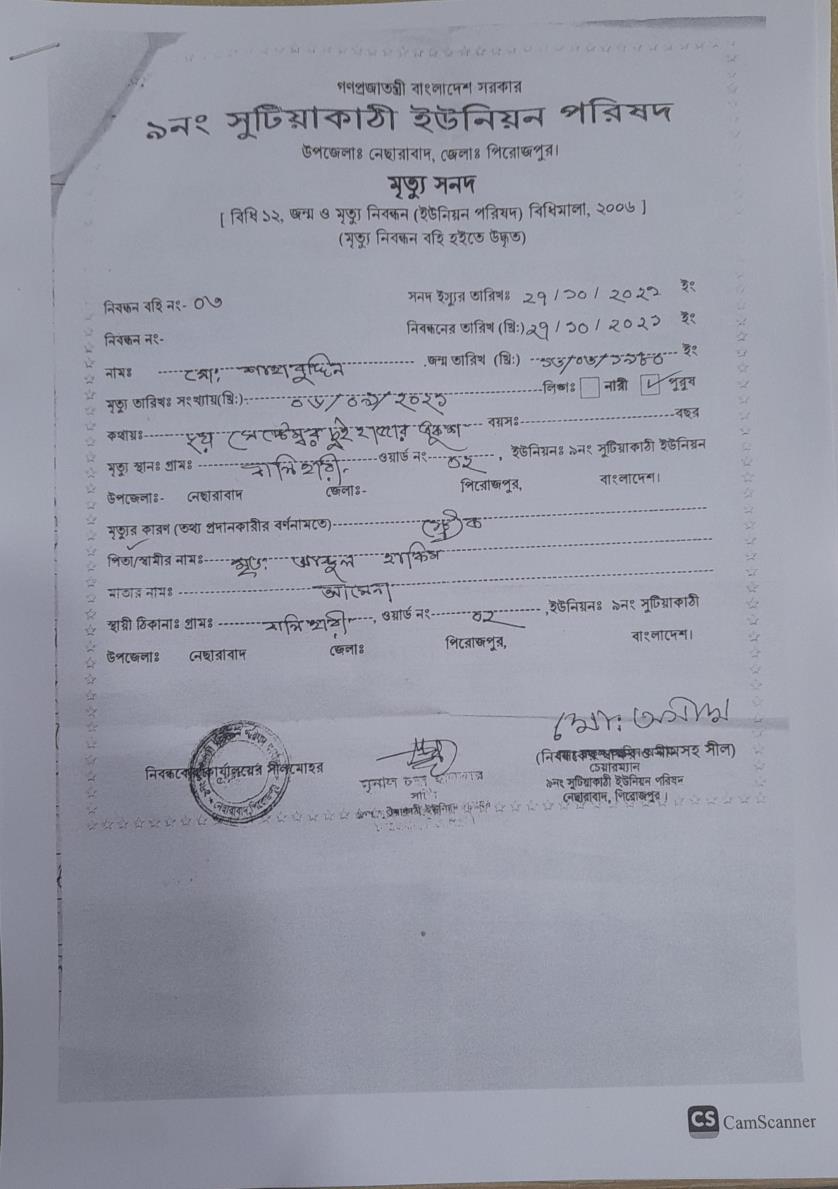 গণপ্রজাতন্ত্রী বাংলাদেশ সরকার
৯নং সুটিয়াকাঠী ইউনিয়ন পরিষদ
উপজেলাঃ নেছারাবাদ, জেলাঃ পিরোজপুর।
মৃত্যু সনদ
[ বিধি ১২, জন্ম ও মৃত্যু নিবন্ধন (ইউনিয়ন পরিষদ) বিধিমালা, ২০০৬ ]
(মৃত্যু নিবন্ধন বহি হইতে উদ্ধৃত)
নিবন্ধন বহি নং- ০৬ সনদ ইস্যুর তারিখঃ ২৭/১০/২০২১ ইং
নিবন্ধন নং- নিবন্ধনের তারিখ (খ্রিঃ) ২৭/১০/২০২১ ইং
নামঃ মোঃ শাহাবুদ্দিন জন্ম তারিখ (খ্রিঃ) ইং
মৃত্যু তারিখঃ সংখ্যায়(খ্রিঃ) লিঙ্গঃ নারী পুরুষ
কথায়ঃ সেপ্টেম্বর দুই হাজার একুশ বয়সঃ বছর
মৃত্যু স্থানঃ গ্রামঃ ওয়ার্ড নং ০২, ইউনিয়নঃ ৯নং সুটিয়াকাঠী ইউনিয়ন
উপজেলাঃ- নেছারাবাদ জেলাঃ- পিরোজপুর, বাংলাদেশ।
মৃত্যুর কারণ (তথ্য প্রদানকারীর বর্ণনামতে) স্ট্রোক
পিতা/স্বামীর নামঃ মৃতঃ আব্দুল হাকিম
মাতার নামঃ আমেনা
স্থায়ী ঠিকানাঃ গ্রামঃ ওয়ার্ড নং ০২, ইউনিয়নঃ ৯নং সুটিয়াকাঠী
উপজেলাঃ নেছারাবাদ জেলাঃ পিরোজপুর, বাংলাদেশ।
নিবন্ধকের কার্যালয়ের সীলমোহর
চেয়ারম্যান
৯নং সুটিয়াকাঠী ইউনিয়ন পরিষদ
নেছারাবাদ, পিরোজপুর।
CS CamScanner